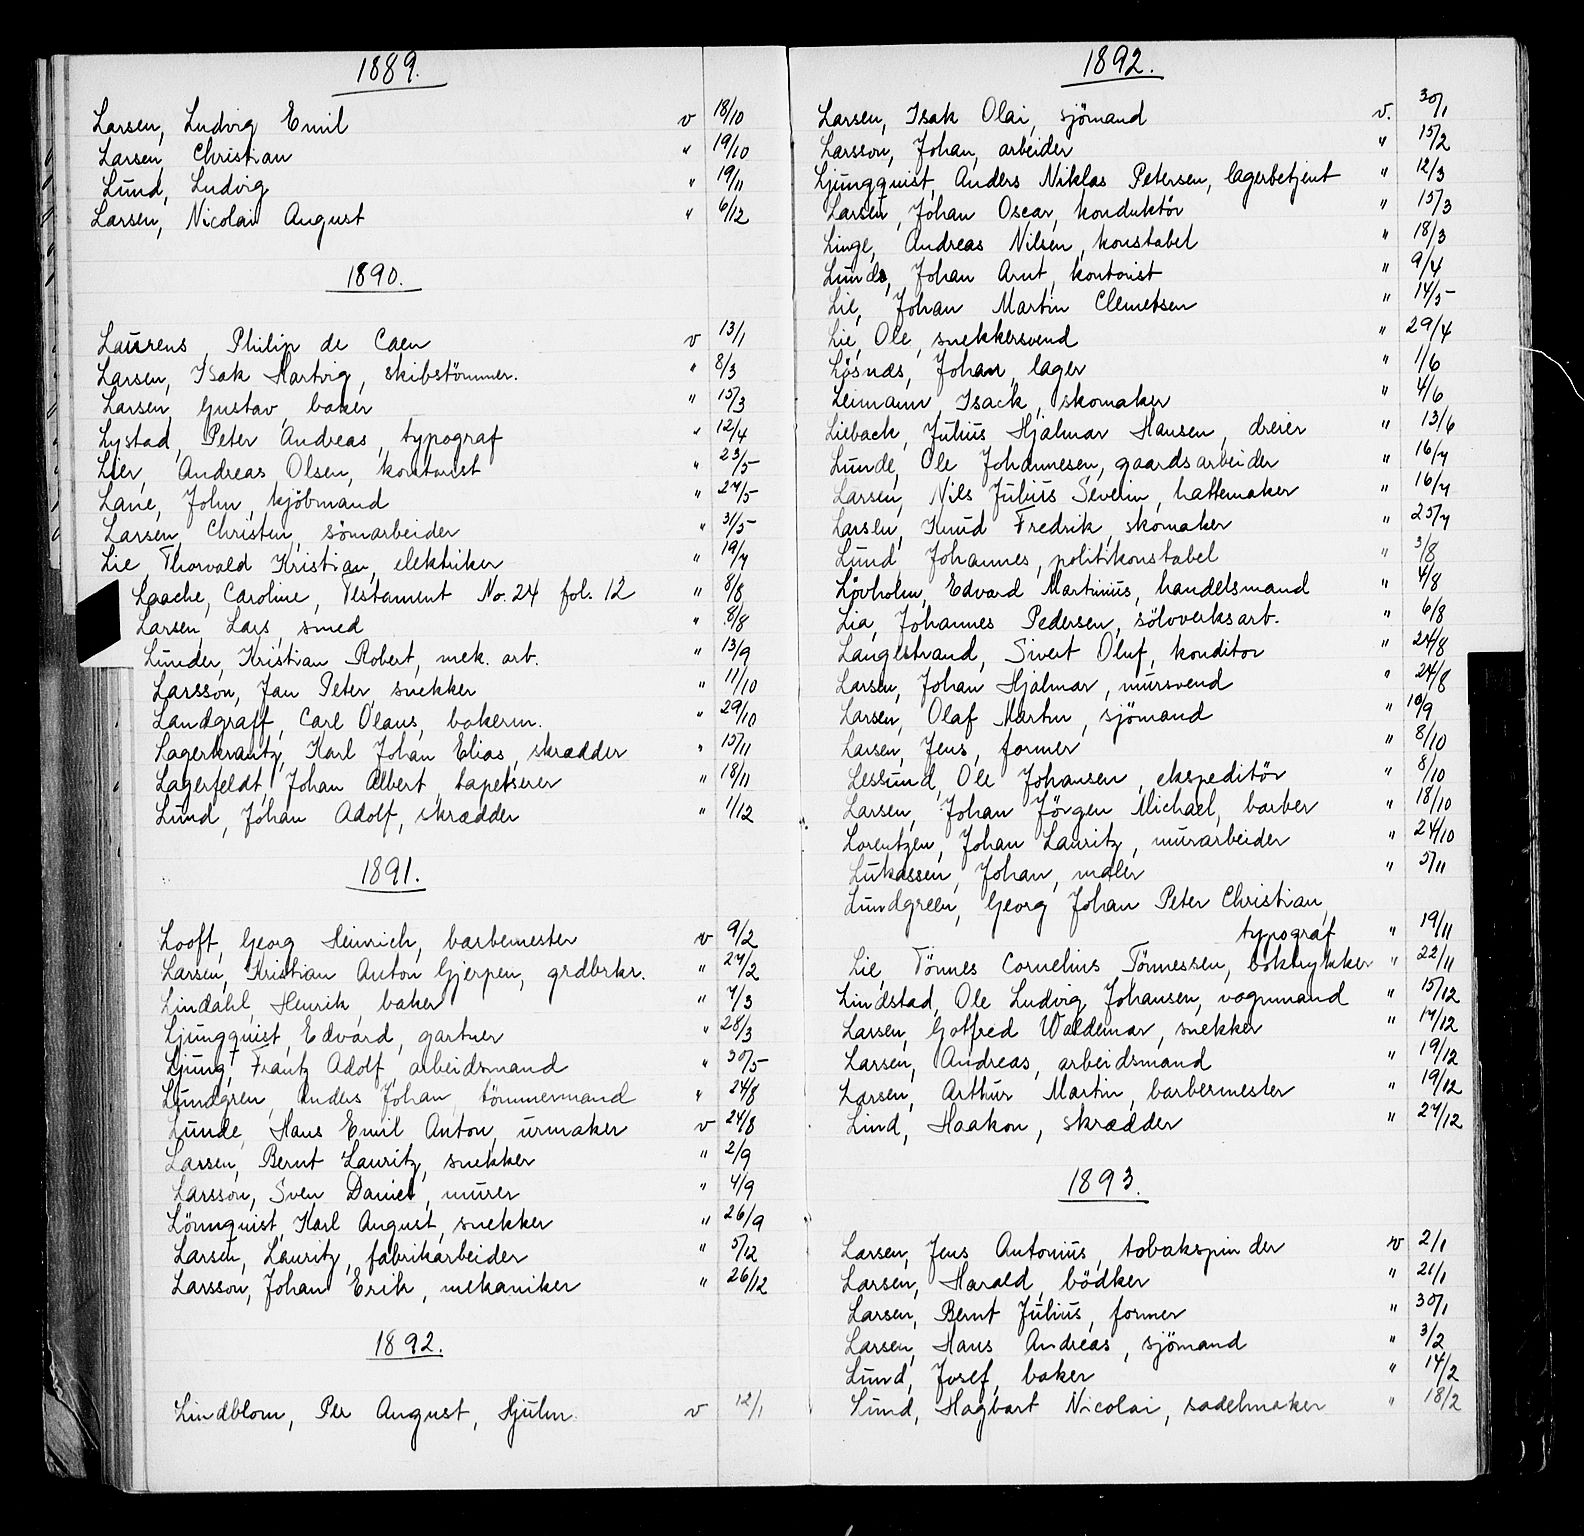 1889.
Larsen, Ludvig Emil v 18/10
Larsen, Christian " 19/10
Lund, Ludvig " 19/11
Larsen, Nicolai August " 6/12
1890.
Laurens, Philip de Caen v 13/1
Larsen, Isak Hartvig, skibstömmer. " 8/3
Larsen, Gustav, baker " 15/3
Lystad, Peter Andreas, typograf " 12/4
Lier, Andreas Olsen, kontorist " 23/5
Lane, John, kjöbmand " 27/5
Larsen, Christen, sömarbeider " 31/5
Lie, Thorvald Kristian, elektriker " 19/7
Laache, Caroline, Testament No. 24 fol. 12 " 8/8
Larsen, Lars, smed " 8/8
Lunder, Kristian Robert, mek. arb. " 13/9
Larsson, Jan Peter, snekker " 11/10
Landgraff, Carl Olaus, bakerm. " 29/10
Lagerkrantz, Karl Johan Elias, skrædder " 15/11
Lagerfeldt, Johan Albert, tapetserer " 18/11
Lund, Johan Adolf, skrædder " 1/12
1891.
Looft, Georg Heinrich, barbemester v 9/2
Larsen, Kristian Anton Gjerpen, grdbrkr. " 27/2
Lindahl, Henrik, baker " 7/3
Ljungquist, Edvard, gartner " 28/3
Ljung, Frantz Adolf, arbeidsmand " 30/5
Lundgren, Anders Johan, tömmermand " 24/8
Lunde, Hans Emil Anton, urmaker v 24/8
Larsen, Bernt Lauritz, snekker " 2/9
Larsson, Sven Daniel, murer " 4/9
Lönnquist, Karl August, snekker " 26/9
Larsen, Lauritz, fabrikarbeider " 5/12
Larsson, Johan Erik, mekaniker " 26/12
1892.
Lindblom, Per August, Hjulm. v 12/1
1892.
Larsen, Isak Olai, sjömand v. 30/1
Larsson, Johan, arbeider " 15/2
Ljungquist, Anders Niklas Petersen, lagerbetjent " 12/3
Larsen, Johan Oscar, konduktör " 15/3
Linge, Andreas Nilsen, konstabel " 18/3
Lunde, Johan Arnt, kontorist " 9/4
Lie, Johan Martin Clemetsen " 14/5
Lie, Ole, snekkersvend " 29/4
Lösnæs, Johan, lager " 1/6
Leimann, Isack, skomaker " 4/6
Lieback, Julius Hjalmar Hansen, dreier " 13/6
Lunde, Ole Johannesen, gaardsarbeider " 16/7
Larsen, Nils Julius Severin, hattemaker " 16/7
Larsen, Knud Fredrik, skomaker " 25/7
Lund Johannes, politikonstabel " 3/8
Lövholm, Edvard Martinius, handelsmand " 4/8
Lia, Johannes Pedersen, sölvverksarb. " 6/8
Langestrand, Sivert Oluf, konditor " 24/8
Larsen, Johan Hjalmar, mursvend " 24/8
Larsen, Olaf Martin, sjömand " 10/9
Larsen, Jens, former " 8/10
Lessund, Ole Johansen, ekspeditör " 8/10
Larsen, Johan Jörgen Michael, barber " 18/10
Lorentzen, Johan Lauritz, murarbeider " 24/10
Lukassen, Johan, maler " 5/11
Lundgreen, Georg Johan Peter Christian,
typograf " 19/11
Lie, Tönnes Cornelius Tönnessen, boktrykker " 22/11
Lindstad, Ole Ludvig Johansen, vognmand " 15/12
Larsen, Gotfred Waldemar, snekker " 17/12
Larsen, Andreas, arbeidsmand " 19/12
Larsen, Arthur Martin, barbermester " 19/12
Lind, Haakon, skrædder " 27/12
1893.
Larsen, Jens Antonius, tobakspinder v 2/1
Larsen, Harald, bödker " 21/1
Larsen, Bernt Julius, former " 30/1
Larsen, Hans Andreas, sjömand " 3/2
Lund, Josef, baker " 14/2
Lund, Hagbart Nicolai, sadelmaker " 18/2